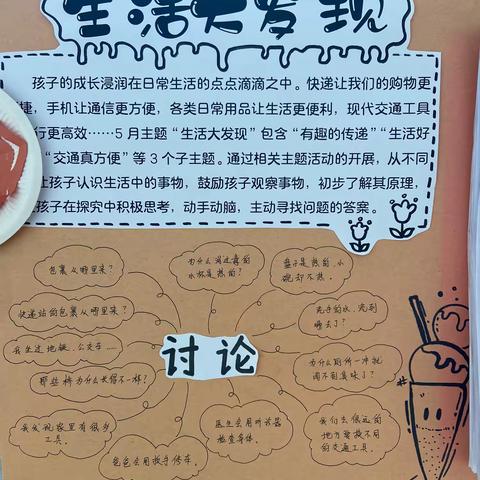 生活大发现
孩子的成长浸润在日常生活的点点滴滴之中。快递让我们的购物更
捷，手机让通信更方便，各类日常用品让生活更便利，现代交通工具
行更高效……5月主题“生活大发现”包含“有趣的传递”“生活好
“交通真方便”等3个子主题。通过相关主题活动的开展，从不同
让孩子认识生活中的事物，鼓励孩子观察事物，初步了解其原理，
孩子在探究中积极思考，动手动脑，主动寻找问题的答案。
包裹从哪里来？
为什么消过毒的
水杯是热的？
盘子是热的，小
碗却不热。
快递站的包裹从哪里来？
洗手的水，流到
哪去了？
我坐过地铁、公交车……
讨论
为什么厕所一冲就
闻不到臭味了？
那些桥为什么长得不一样？
我发现家里有很多
工具。
医生会用听诊器
检查身体。
我们去很远的
地方要换不同
的交通工具。
爸爸会用扳手修车。